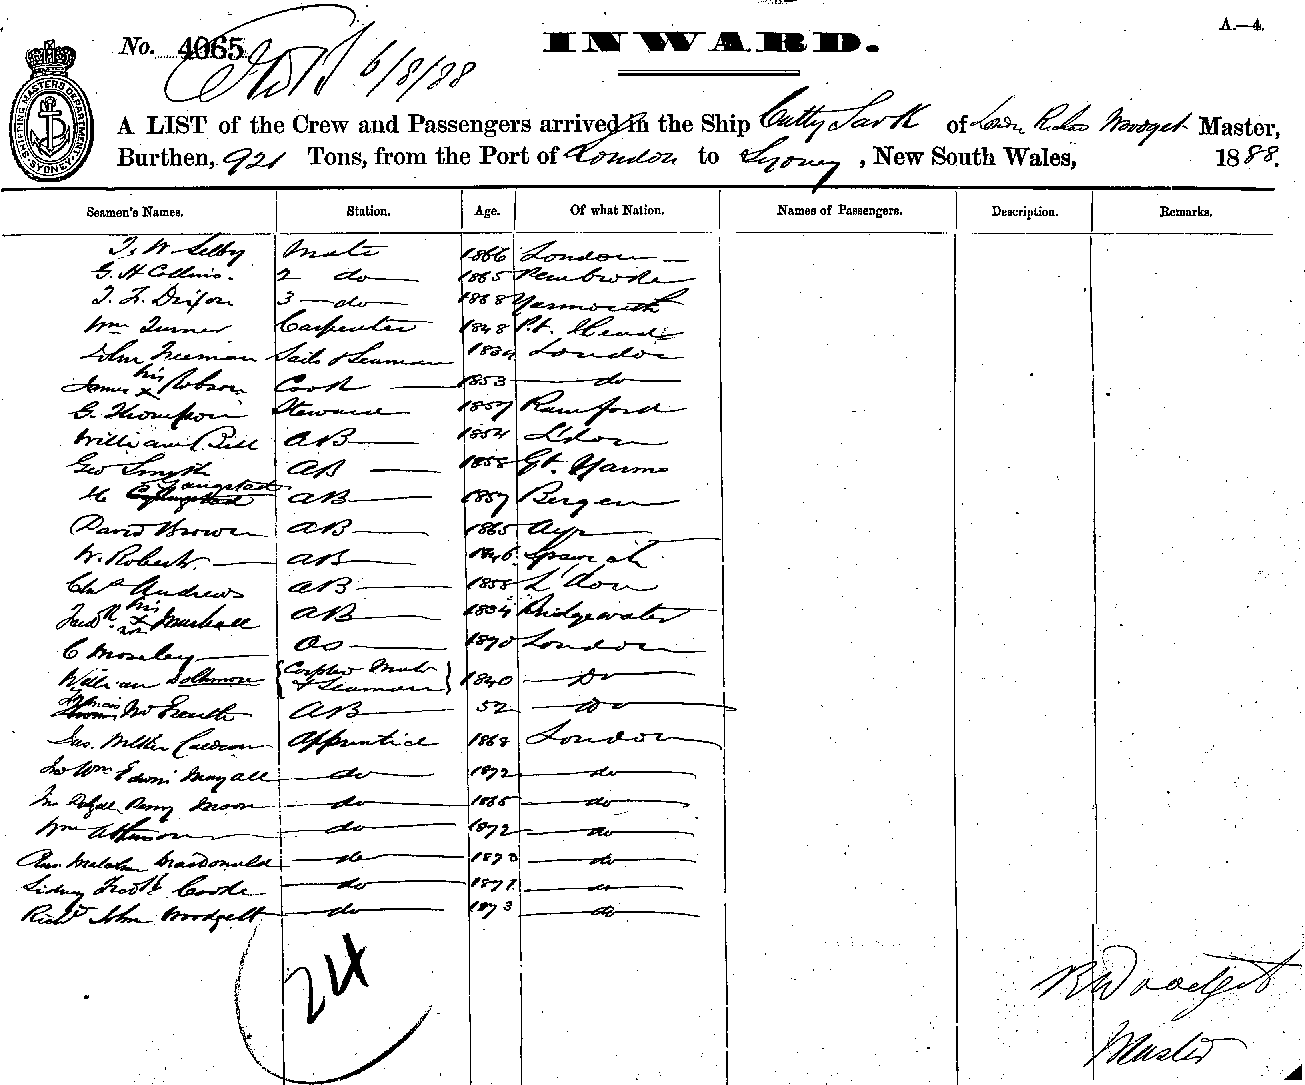 A.—4.
No. 4065
INWARD.
6/8/88
A LIST of the Crew and Passengers arrived in the Ship Cutty Sark of London Richd Woodget Master,
Burthen, 921 Tons, from the Port of London to Sydney, New South Wales, 1888.
SHIPPING MASTERS DEPARTMENT SYDNEY
Seamen's Names. Station. Age. Of what Nation. Names of Passengers. Description. Remarks.
T. W. Selby Mate 1866 London
G. H Collins. 2 do 1865 Pembroke
T. F. Dixon 3 do 1868 Yarmouth
Wm Turner Carpenter 1848 Pt. Head
John Freeman Sails & Seaman London
James his x Robson Cook 1853 do
G. Thompson Steward 1857
William Bell AB 1854 L'don
Geo Smyth AB 1858 Gt. Yarmo
H Langstad AB 1857 Bergen
David Brown AB 1865 Ayr
W. Roberts AB 1846 Ipswich
Chas Andrews AB 1858 L'don
his x Marshall AB 1834 Bridgewater
C Moseley OS 1870 London
William {Carpters Mate & Seaman} 1840 Do
AB 52 do
Jas. Apprentice 1868 London
Jno Wm Edwin Mayall do 1872 do
Perry do do
Wm Atkinson do 1872 do
Malcolm Macdonald do 1873 do
Sidney do do
Richd John Woodgett do 1873 do
24
R Woodget
Master